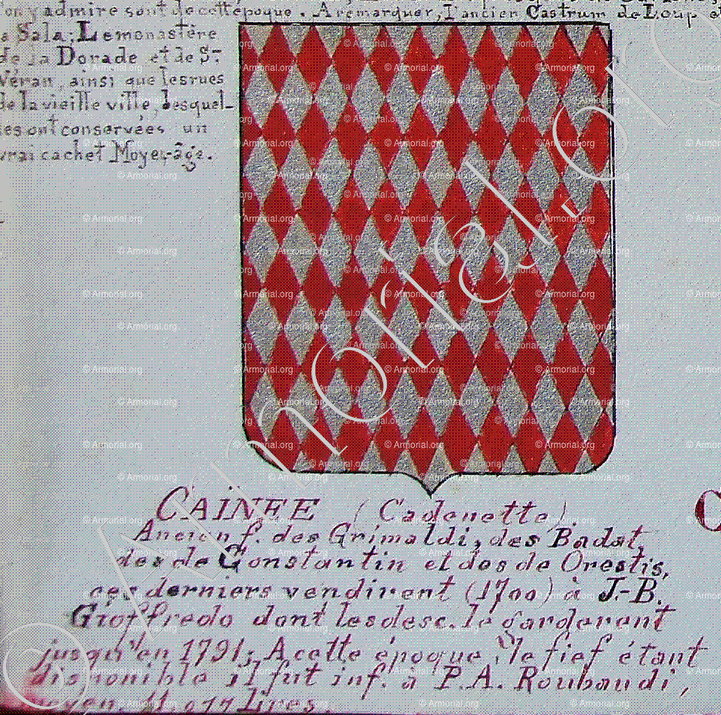 on y admire sont de cette époque. A remarquer, l'ancien Castrum de Loup et
Sala; Le monastère
de la Dorade et de St
Véran, ainsi que les rues
de la vieille ville, desquel-
les ont conservées un
vrai cachet Moyen-âge.
© Armorial.org
CAÏNÉE (Cadenette)
Ancien f. des Grimaldi, des Badat,
des de Constantin et des de Orestis,
ces derniers vendirent (1700) à J.-B.
Gioffredo dont les desc. le garderent
jusqu'en 1791; A cette époque, le fief étant
disponible il fut inf. à P.A. Roubaudi,